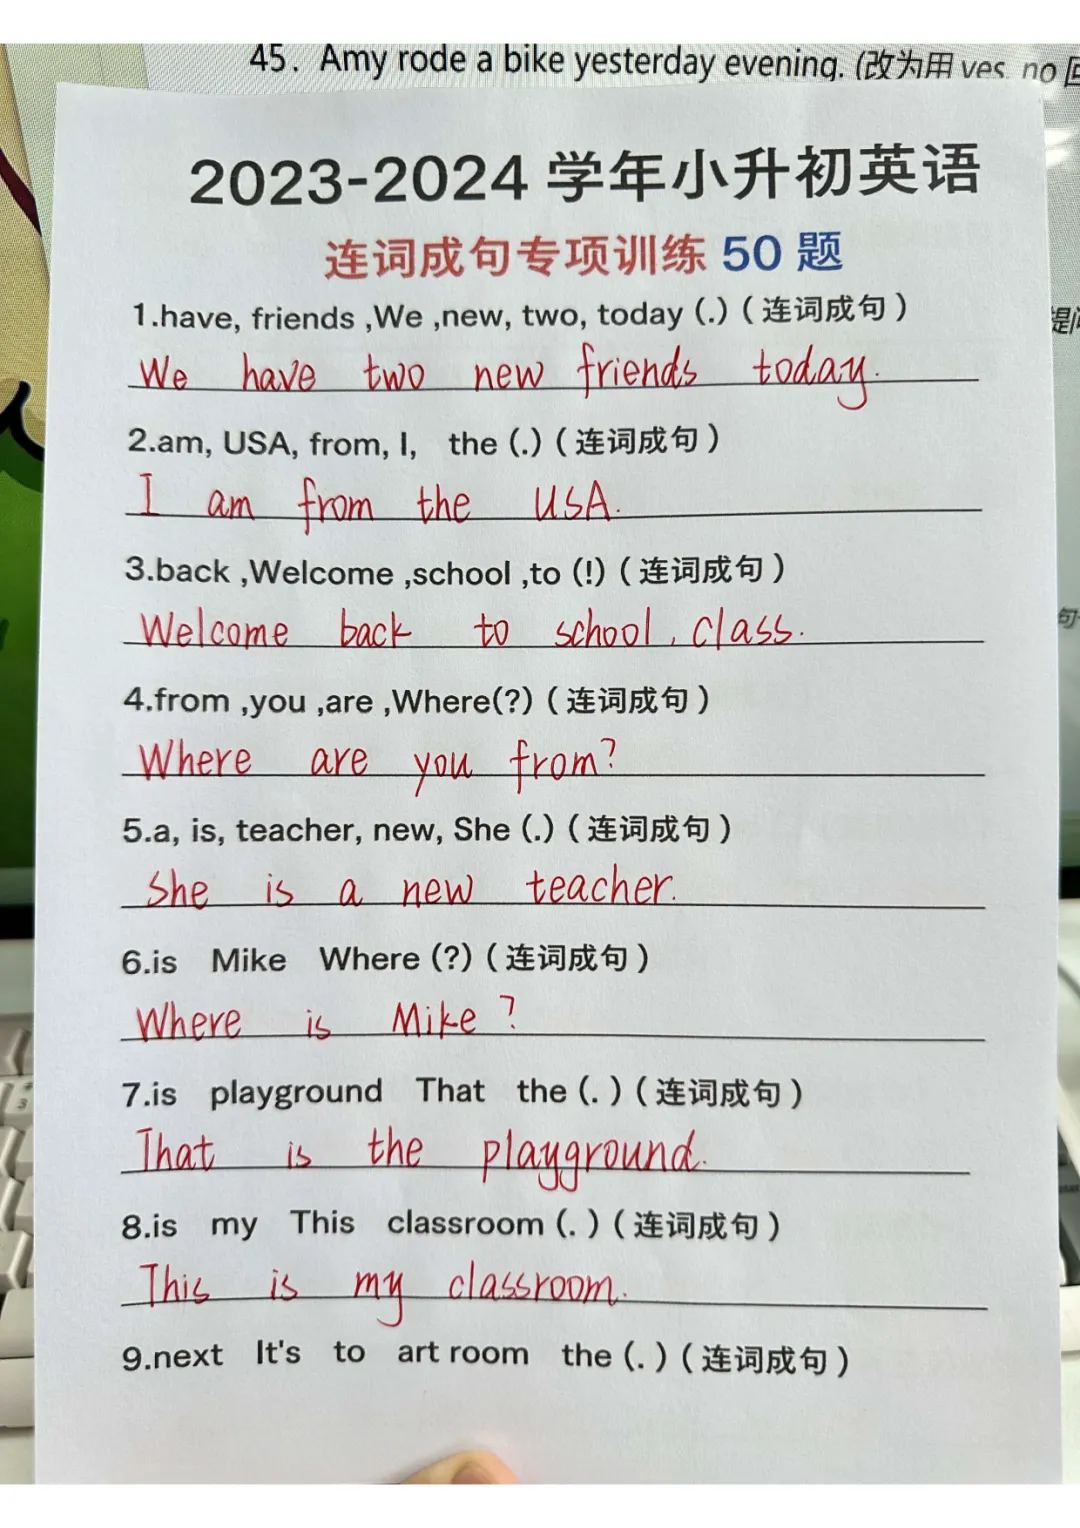 45. Amy rode a bike yesterday evening. (改为用 yes, no
2023-2024 学年小升初英语
连词成句专项训练 50 题
1.have, friends ,We ,new, two, today (.)（连词成句）
We have two new friends today.
2.am, USA, from, I, the (.)（连词成句）
I am from the USA.
3.back ,Welcome ,school ,to (!)（连词成句）
Welcome back to school, class.
4.from ,you ,are ,Where(?)（连词成句）
Where are you from?
5.a, is, teacher, new, She (.)（连词成句）
She is a new teacher.
6.is Mike Where (?)（连词成句）
Where is Mike ?
7.is playground That the (. )（连词成句）
That is the playground.
8.is my This classroom (. )（连词成句）
This is my classroom.
9.next It's to art room the (. )（连词成句）